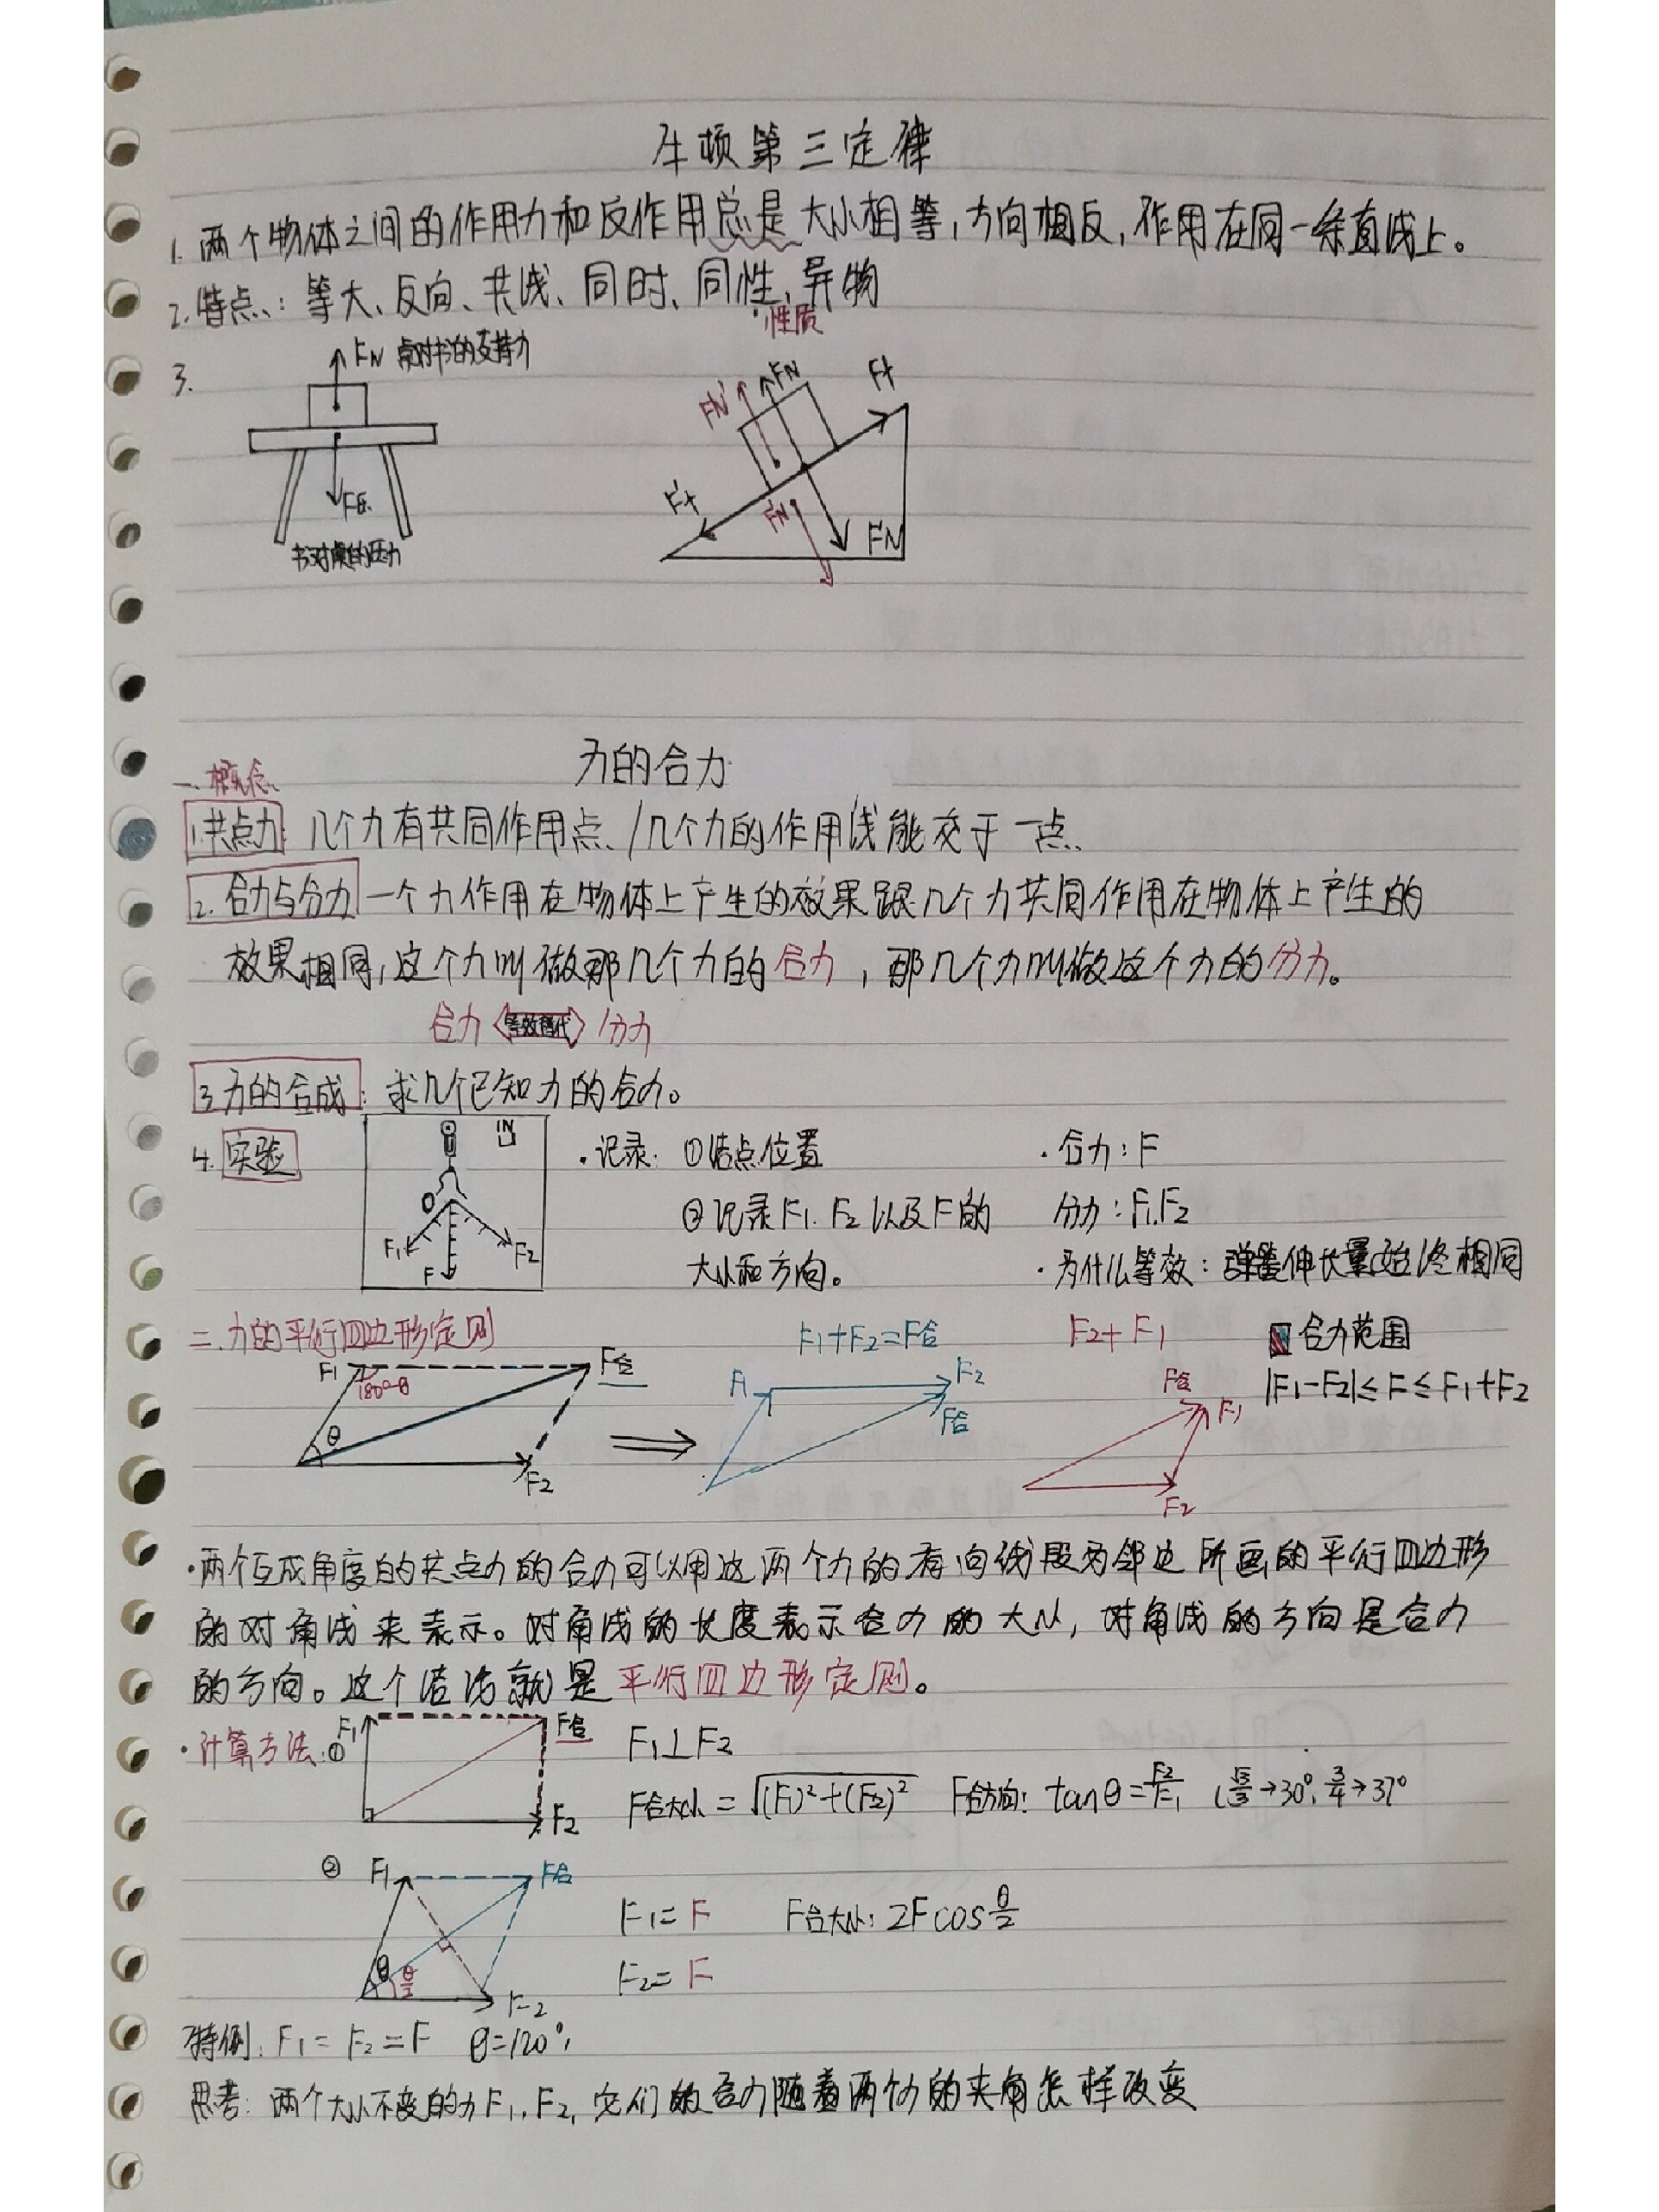 牛顿第三定律
1. 两个物体之间的作用力和反作用总是大小相等,方向相反,作用在同一条直线上。
2. 特点:等大、反向、共线、同时、同性、异物
性质
3.
FN 桌对书的支持力
F压
书对桌的压力
FN' FN Ff
Ff' FN' FN
力的合力
一、概念
1.共点力 几个力有共同作用点/几个力的作用线能交于一点
2. 合力与分力 一个力作用在物体上产生的效果跟几个力共同作用在物体上产生的
效果相同,这个力叫做那几个力的合力,那几个力叫做这个力的分力。
合力 等效替代 分力
3.力的合成:求几个已知力的合力。
4. 实验
1N
O
F1 F F2
·记录:①结点位置
②记录F1. F2以及F的
大小和方向。
·合力:F
分力:F1.F2
·为什么等效:弹簧伸长量始终相同
二.力的平行四边形定则
F1 180°-θ F合
θ F2
F1+F2=F合
F1 F2
F合
F2+F1
F合 F1
F2
合力范围
|F1-F2|≤F≤F1+F2
·两个互成角度的共点力的合力可以用这两个力的有向线段为邻边所画的平行四边形
的对角线来表示。对角线的长度表示合力的大小,对角线的方向是合力
的方向。这个结论就是平行四边形定则。
·计算方法:① F1 F合 F2
F1⊥F2
F合大小=√(F1)²+(F2)² F合方向:tanθ=F2/F1 (√3/3→30°, 3/4→37°
② F1 F合
θ θ/2 F2
F1=F F合大小:2Fcosθ/2
F2=F
特例:F1=F2=F θ=120°,
思考:两个大小不变的力F1,F2,它们的合力随着两个力的夹角怎样改变